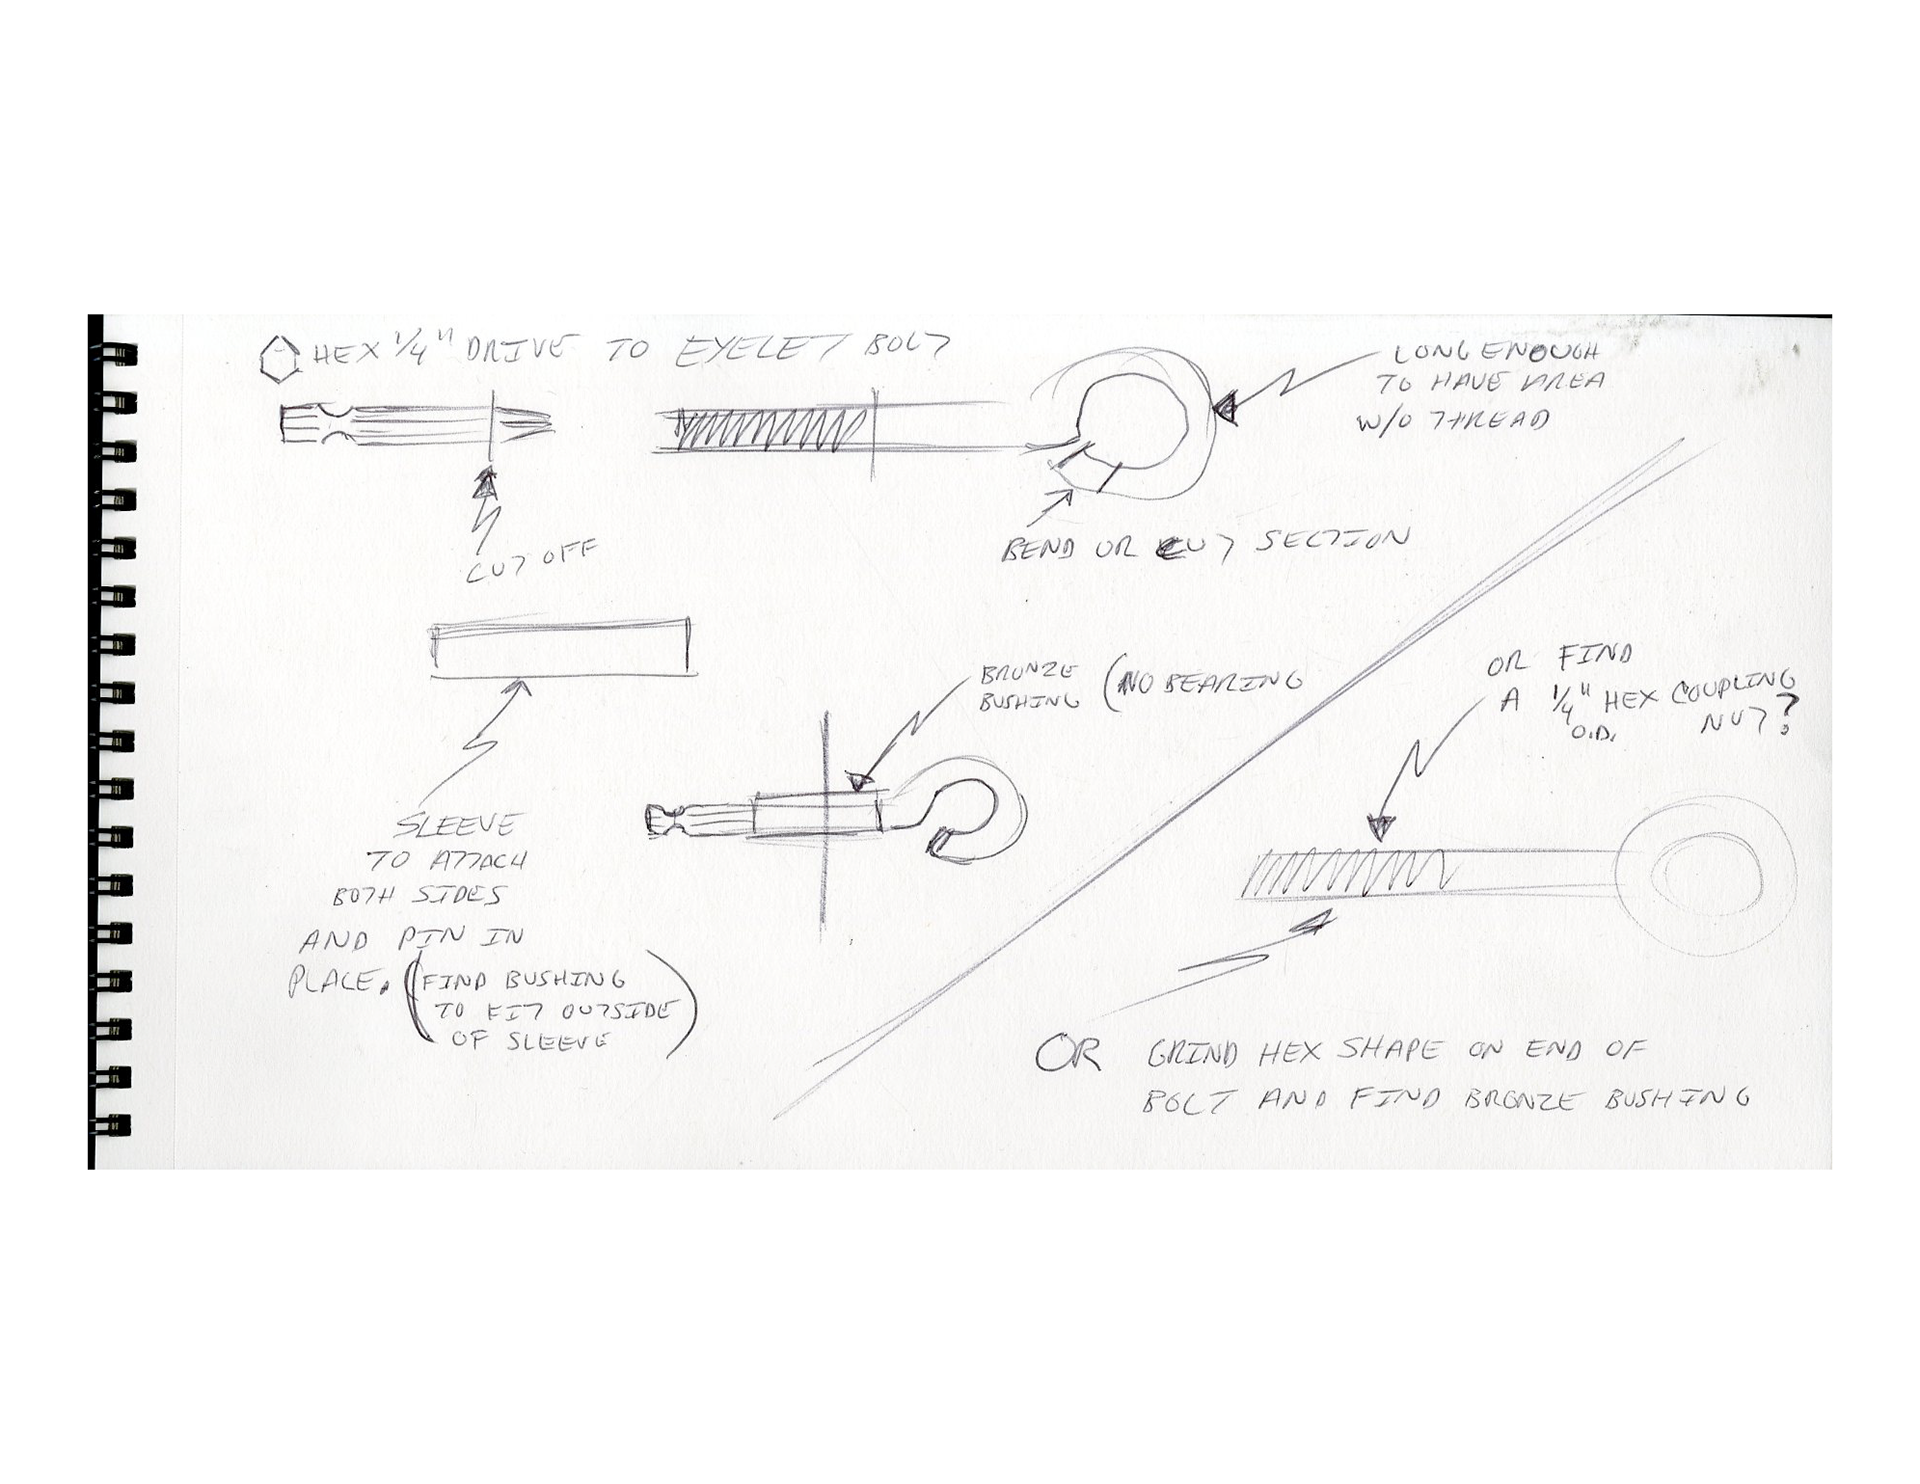 HEX 1/4" DRIVE TO EYELET BOLT
LONG ENOUGH
TO HAVE AREA
W/O THREAD
CUT OFF
BEND OR CUT SECTION
BRONZE
BUSHING (NO BEARING
OR FIND
A 1/4" HEX COUPLING
O.D. NUT?
SLEEVE
TO ATTACH
BOTH SIDES
AND PIN IN
PLACE. (FIND BUSHING
TO FIT OUTSIDE
OF SLEEVE)
OR GRIND HEX SHAPE ON END OF
BOLT AND FIND BRONZE BUSHING